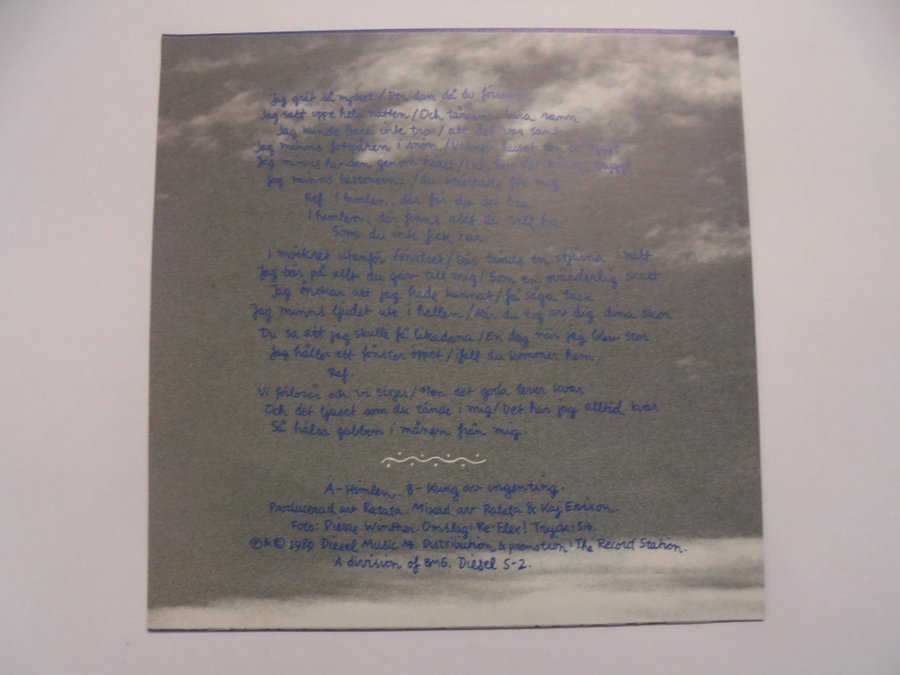 Jag grät så mycket / Den dan då du försvann
Jag satt uppe hela natten / Och tårarna bara rann
Jag kunde bara inte tro / att det var sant
Jag minns fotspåren i snön / huset som
Jag minns handen genom håret / Och hur det kändes tryggt
Jag minns historierna / du berättade för mig
Ref. I himlen, där får du det bra
I himlen, där finns allt du vill ha
Som du inte fick här.
I mörkret utanför fönstret / Där tänds en stjärna i natt
Jag bär på allt du gav till mig / Som en ovärderlig skatt
Jag önskar att jag hade hunnit / få säga tack
Jag minns ljudet ute i hallen / När du tog av dig dina skor
Du sa att jag skulle få likadana / En dag när jag blev stor
Jag håller ett fönster öppet / ifall du kommer hem.
Ref.
Vi förlorar och vi segrar / Men det goda lever kvar
Och det ljuset som du tände i mig / Det har jag alltid kvar
Så hälsa gubben i månen från mig.
A - Himlen B - Kung av ingenting.
Producerad av Ratata. Mixad av Ratata & Kaj Erixon.
Foto: Pierre Winther. Omslag: Re-Elex! Tryck: Sib.
Ⓟ & © 1989 Diesel Music AB. Distribution & promotion: The Record Station.
A division of BMG. Diesel S-2.